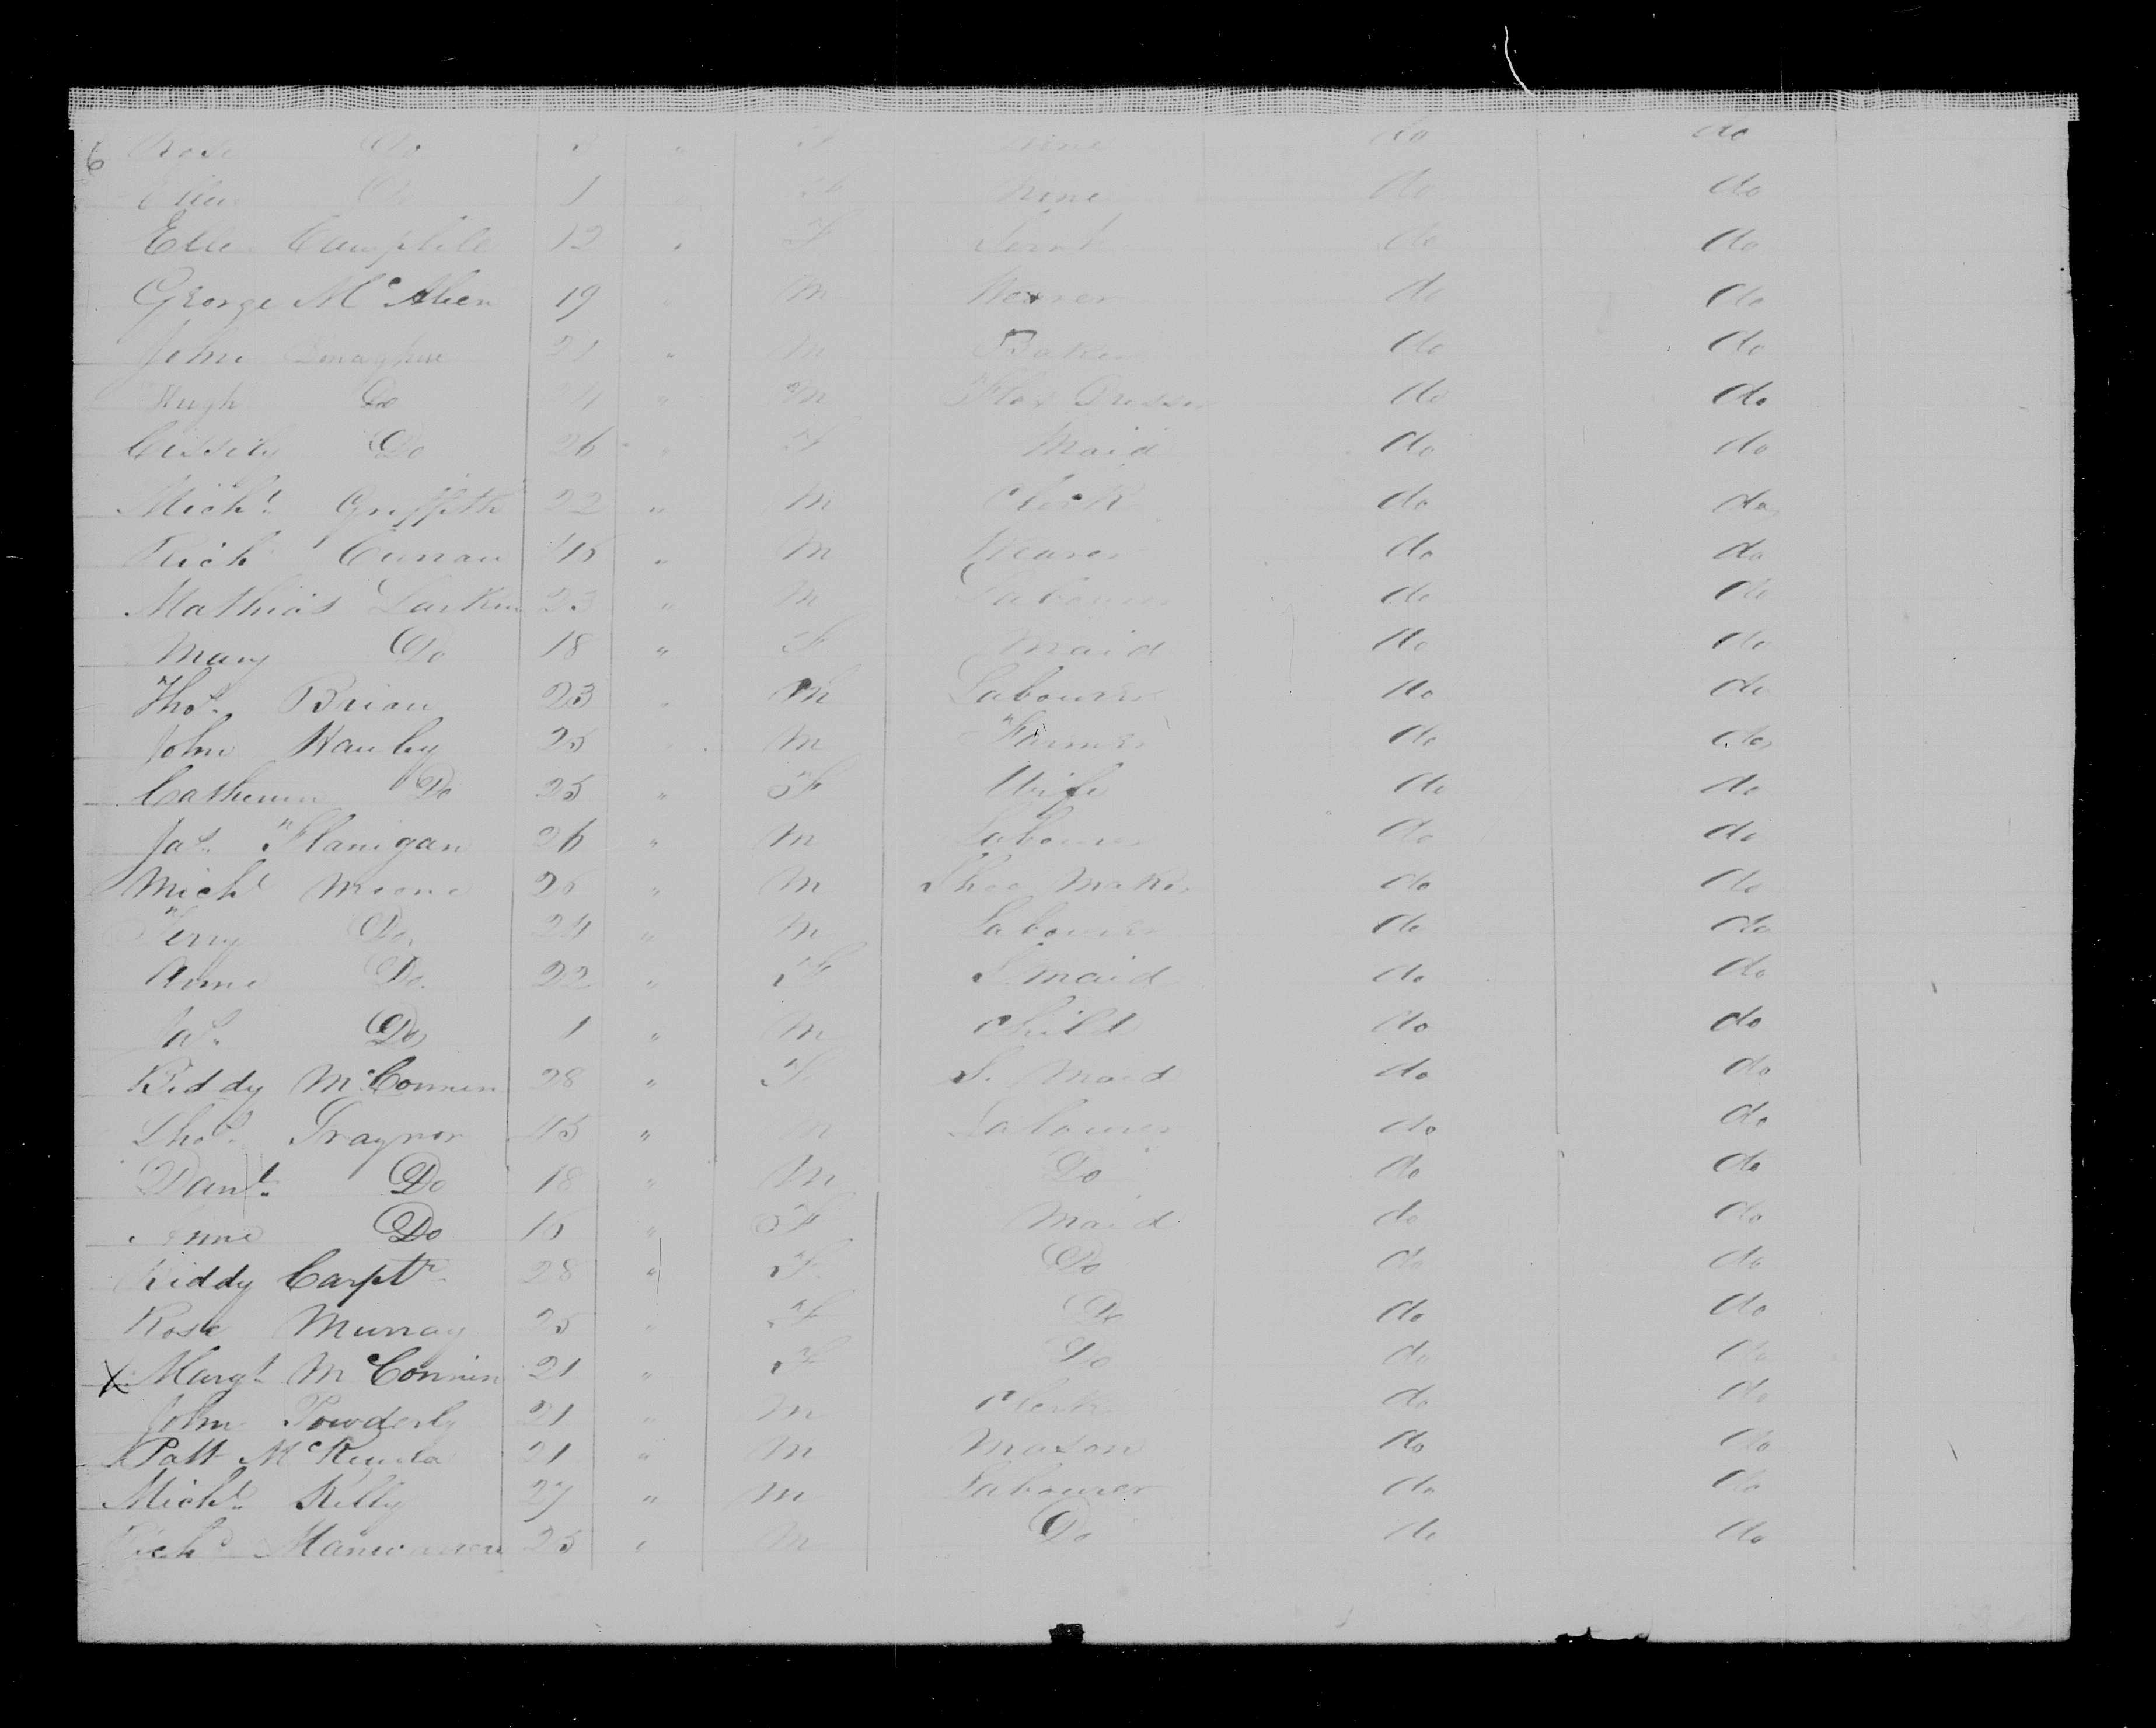 6 Rose Do 3 " F None do do
Ellen Do 1 " F None do do
Ellen Campbell 12 " F Servt do do
George McAleen 19 " M Weaver do do
John 21 " M Baker do do
Hugh Do 24 " M Flax Dresser do do
Cissily Do 26 " F Maid do do
Michl Griffith 22 " M Clerk do do
Rich Curran 45 " M Weaver do do
Mathias Larkin 23 " M Labourer do do
Mary Do 18 " F Maid do do
Thos Brian 23 " M Labourer do do
John Hanley 25 " M Farmer do do
Catherine Do 25 " F Wife do do
Jas Flanigan 26 " M Labourer do do
Michl Moone 26 " M Shoe Maker do do
Terry Do 24 " M Labourer do do
Anne Do 22 " F S. Maid do do
Jas Do 1 " M Child do do
Biddy McConnen 28 " F S. Maid do do
Thos Traynor 45 " M Labourer do do
Danl Do 18 " M Do do do
Anne Do 16 " F Maid do do
Biddy Carptr 28 " F Do do do
Rose Murray 25 " F Do do do
X Margt McConnen 21 " F Do do do
John Powderly 21 " M Clerk do do
Patt McKenda 21 " M Mason do do
Michl Kelly 27 " M Labourer do do
Richd 25 " M Do do do